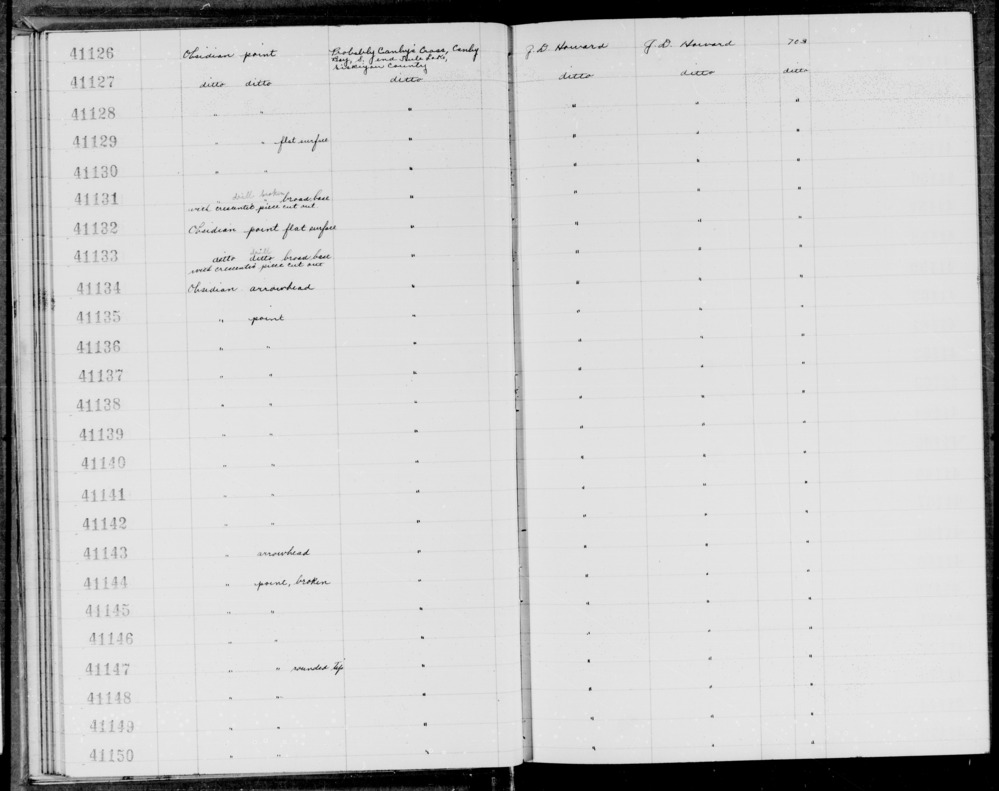 41126 Obsidian point Probably Canby's Cross, Canby J. D. Howard J. D. Howard 703
Bay, S. end Tule Lake,
Siskiyou County
41127 ditto ditto ditto ditto ditto ditto
41128 " " " " " "
41129 " " flat surface " " " "
41130 " " " " " "
41131 " drill broken " broad base " " " "
with crescentic piece cut out
41132 Obsidian point flat surface " " " "
drill
41133 ditto ditto broad base " " " "
with crescentic piece cut out
41134 Obsidian arrowhead " " " "
41135 " point " " " "
41136 " " " " " "
41137 " " " " " "
41138 " " " " " "
41139 " " " " " "
41140 " " " " " "
41141 " " " " " "
41142 " " " " " "
41143 " arrowhead " " " "
41144 " point, broken " " " "
41145 " " " " " "
41146 " " " " " "
41147 " " rounded tip " " " "
41148 " " " " " "
41149 " " " " " "
41150 " " " " " "